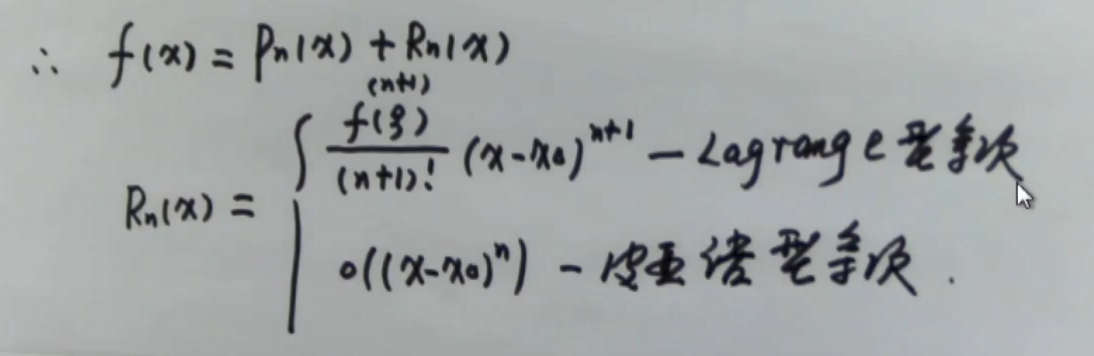 ∴ f(x) = Pn(x) + Rn(x)
Rn(x) = { f⁽ⁿ⁺¹⁾(ξ)/(n+1)! (x-x₀)ⁿ⁺¹ — Lagrange型余项
o((x-x₀)ⁿ) — 皮亚诺型余项.